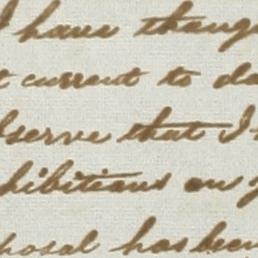 I have though
t current to da
bserve that I
hibitions on
posal has been